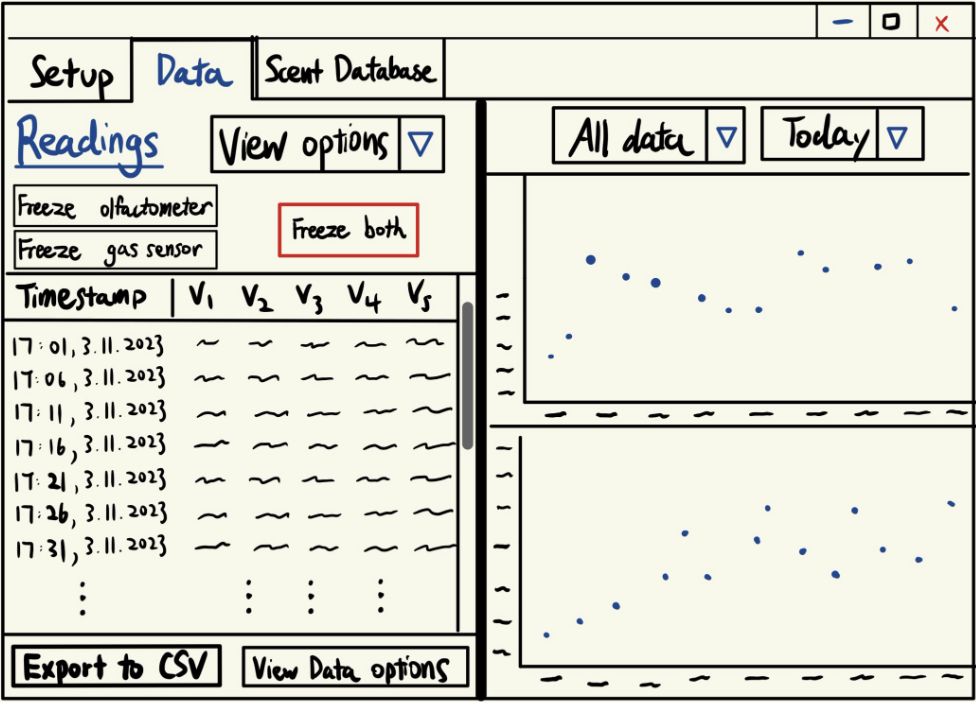 Setup Data Scent Database
Readings View options
Freeze olfactometer
Freeze gas sensor
Freeze both
Timestamp V1 V2 V3 V4 V5
17:01, 3.11.2023
17:06, 3.11.2023
17:11, 3.11.2023
17:16, 3.11.2023
17:21, 3.11.2023
17:26, 3.11.2023
17:31, 3.11.2023
Export to CSV View Data options
All data Today